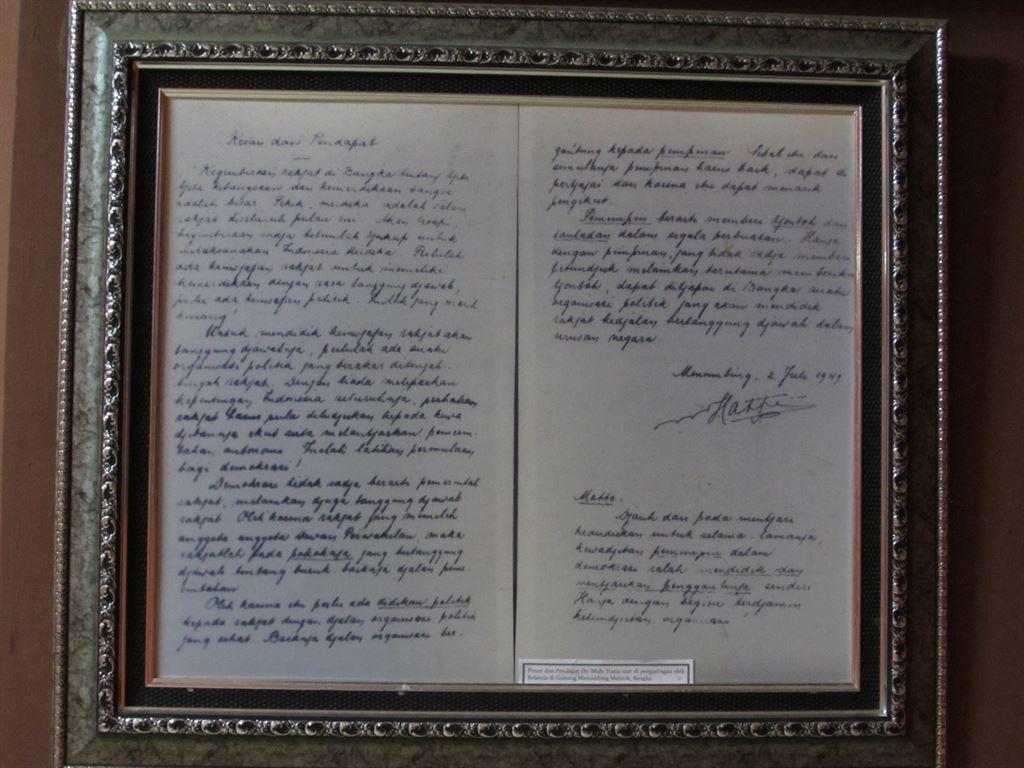 Kesan dan Pendapat
Kegembiraan rakjat di Bangka tentang tjita
tjita kebangsaan dan kemerdekaan bangsa
adalah besar. Pekik, merdeka adalah salam
rakjat diseluruh pulau ini. Akan tetapi
kegembiraan sadja belumlah tjukup untuk
melaksanakan Indonesia Merdeka. Perlulah
ada keinsjafan rakjat untuk memiliki
kemerdekaan dengan rasa tanggung djawab,
perlu ada keinsjafan politik. Inilah jang masih
kurang!
Untuk mendidik keinsjafan rakjat akan
tanggung djawabnja, perlulah ada suatu
organisasi politik jang berakar ditengah-
tengah rakjat. Dengan tiada melupakan
kepentingan Indonesia seluruhnja, perhatian
rakjat harus pula ditudjukan kepada kewa
djibannja ikut serta melantjarkan pemerin-
tahan autonomi. Inilah latihan permulaan
bagi demokrasi!
Demokrasi tidak sadja berarti pemerintah
rakjat, melainkan djuga tanggung djawab
rakjat. Oleh karena rakjat jang memilih
anggota anggota Dewan Perwakilan, maka
rakjatlah pada pokoknja jang bertanggung
djawab tentang buruk baiknja djalan peme-
rintahan.
Oleh karena itu perlu ada didikan politik
kepada rakjat dengan djalan organisasi politik
jang sehat. Baiknja djalan organisasi ber-
gantung kepada pimpinan. Sebab itu dari
semulanja pimpinan harus baik, dapat di
pertjajai dan karena itu dapat menarik
pengikut.
Memimpin berarti memberi tjontoh dan
tauladan dalam segala perbuatan. Hanja
dengan pimpinan, jang tidak sadja memberi
petundjuk melainkan terutama memberikan
tjontoh, dapat ditjapai di Bangka suatu
organisasi politik jang akan mendidik
rakjat kedjalan bertanggung djawab dalam
urusan negara.
Menumbing, 2 Juli 1949
Hatta
Motto:
Djauh dari pada mentjari
kedudukan untuk selama-lamanja,
kewadjiban pemimpin dalam
demokrasi ialah mendidik dan
mentjarikan penggantinja sendiri.
Hanja dengan begitu terdjamin
kelandjutan organisasi!
Pesan dan Pendapat Dr. Moh. Hatta saat di pengasingan oleh
Belanda di Gunung Menumbing Mentok, Bangka